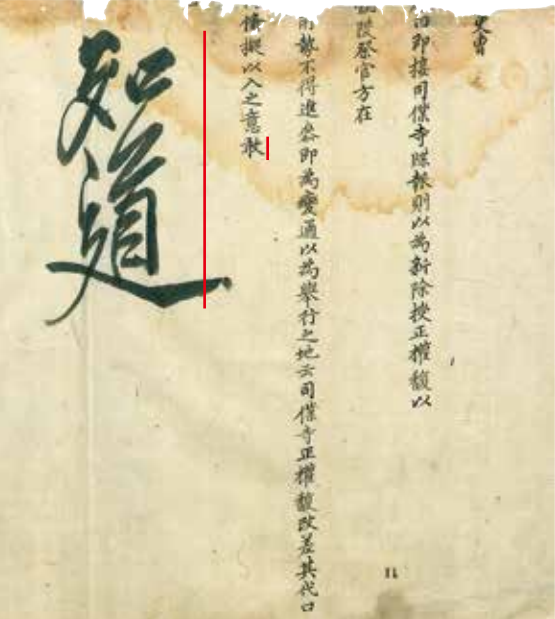 吏曹
即接司僕寺牒報則以爲新除授正權馥以
陵祭官方在
勢不得進參即爲變通以爲擧行之地云司僕寺正權馥改差其代口
擬以入之意敢
知道